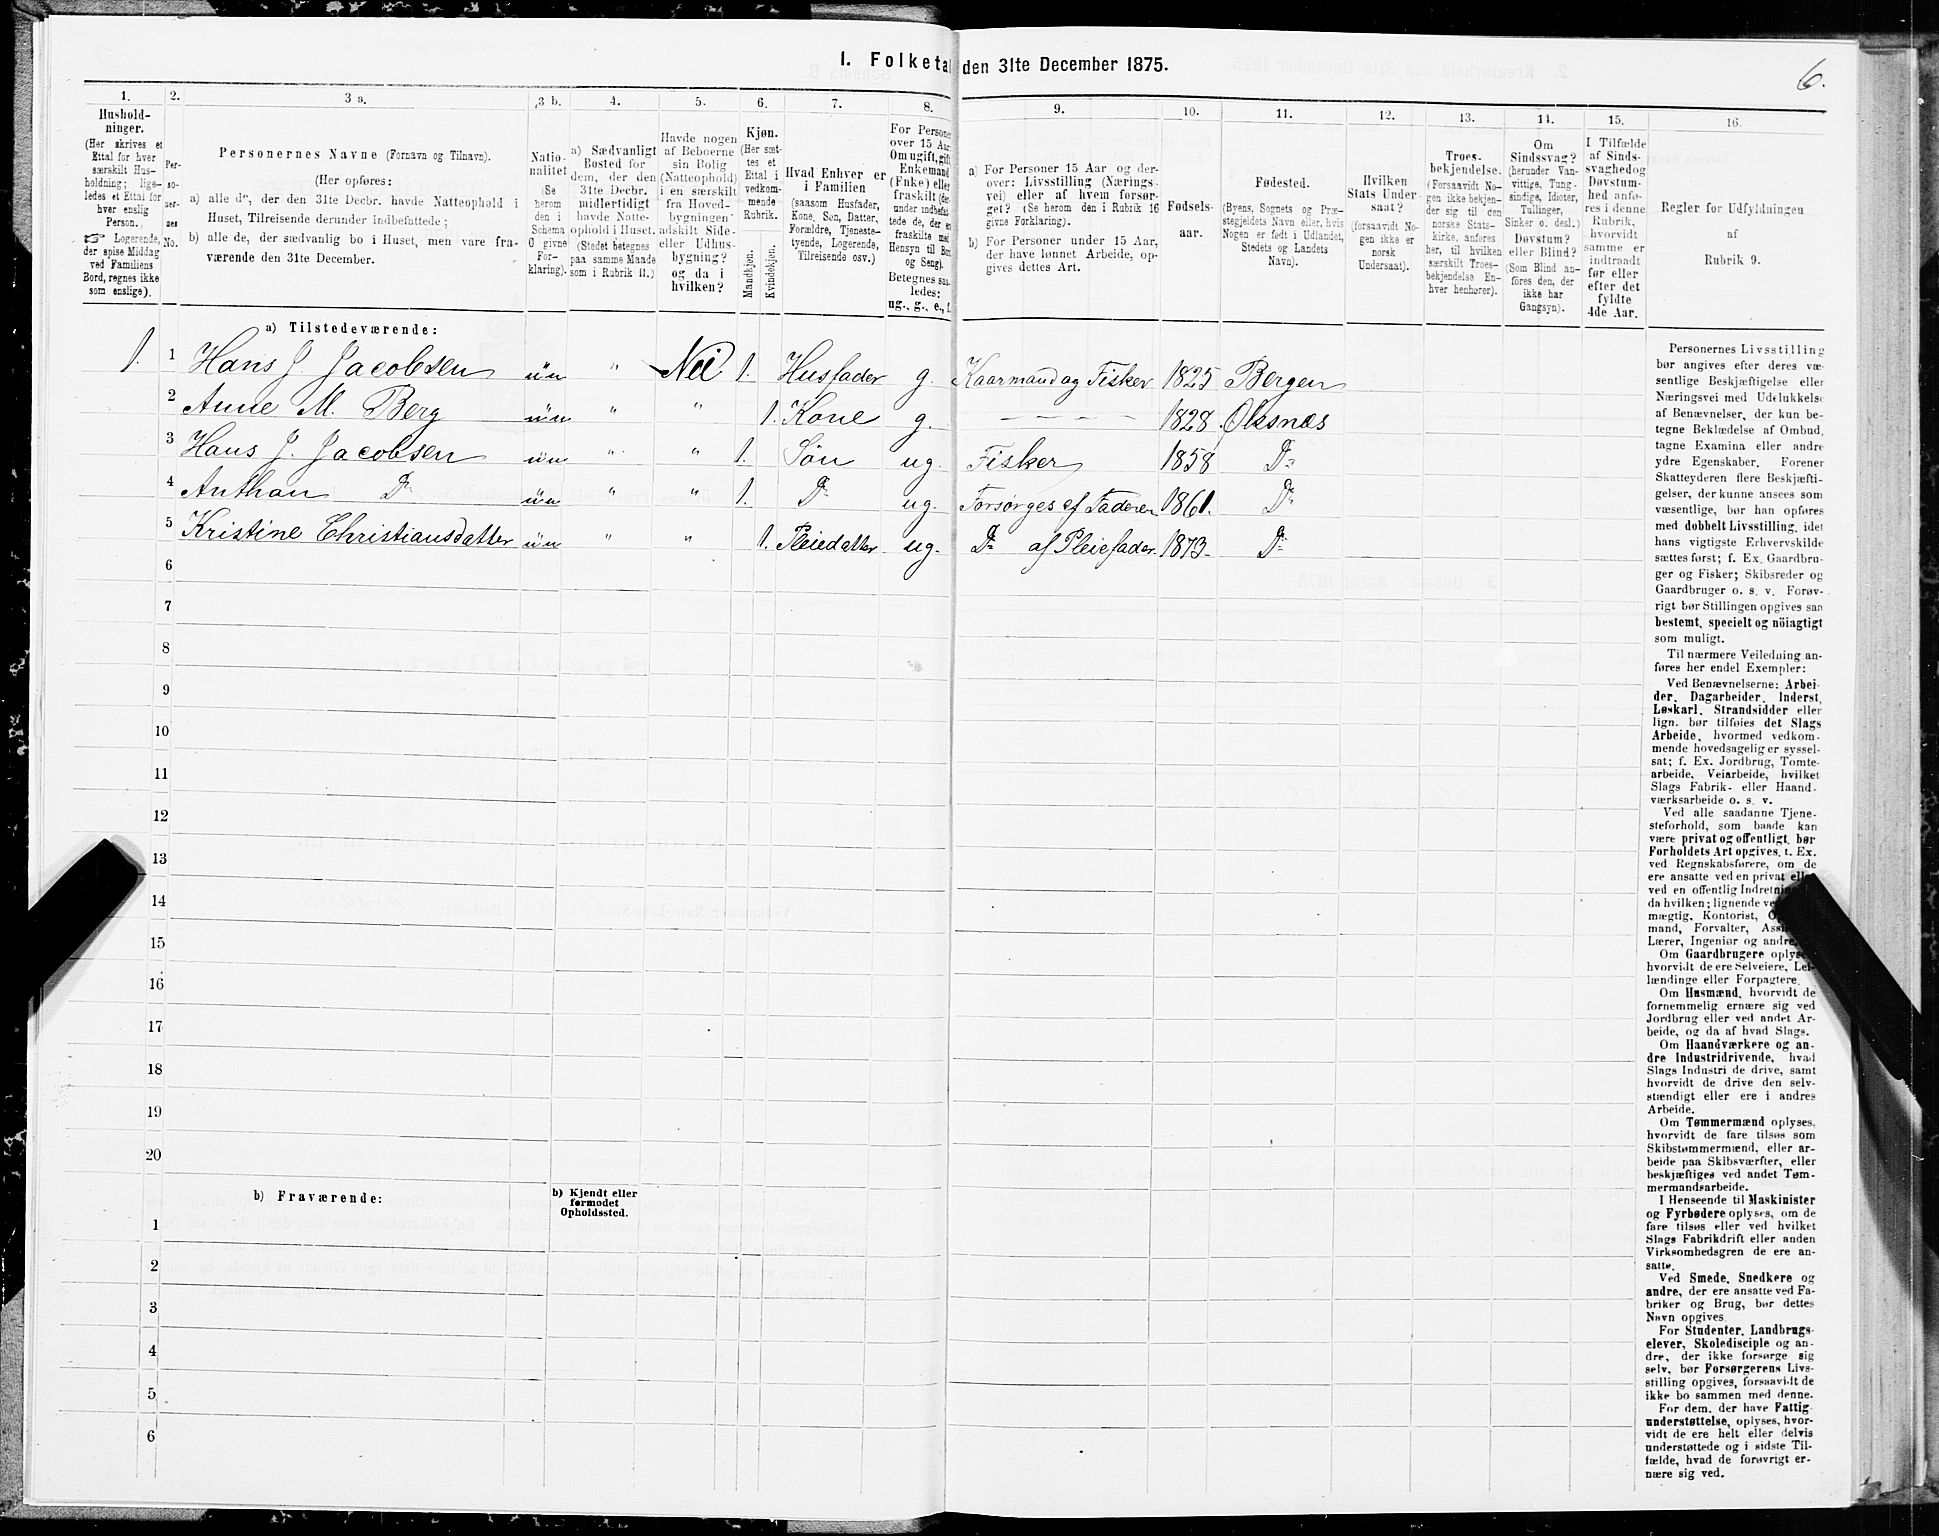 I. Folketal den 31te December 1875.
6.
1.
Hushold-
ninger.
(Her skrives et
Ettal for hver
særskilt Hus-
holdning; lige-
ledes et Ettal for
hver enslig
Person.
☞ Logerende,
der spise Middag
ved Familiens
Bord, regnes ikke
som enslige).
2.
Per-
so-
ner-
nes
No.
3 a.
Personernes Navne (Fornavn og Tilnavn).
(Her opføres:
a) alle de, der den 31te Decbr. havde Natteophold i
Huset, Tilreisende derunder indbefattede;
b) alle de, der sædvanlig bo i Huset, men vare fra-
værende den 31te December.
3 b.
Natio-
nalitet
(Se
herom
den i
Schema
O givne
For-
klaring).
4.
a) Sædvanligt
Bosted for
dem, der den
31te Decbr.
midlertidigt
havde Natte-
ophold i Huset.
(Stedet betegnes
paa samme Maade
som i Rubrik 11.)
5.
Havde nogen
af Beboerne
sin Bolig
(Natteophold)
i en særskilt
fra Hoved-
bygningen
adskilt Side-
eller Udhus-
bygning?
og da i
hvilken?
6.
Kjøn.
(Her sæt-
tes et
Ettal i
vedkom-
mende
Rubrik.
Mandkjøn.
Kvindekjøn.
7.
Hvad Enhver er
i Familien
(saasom Husfader,
Kone, Søn, Datter,
Forældre, Tjeneste-
tyende, Logerende,
Tilreisende osv.)
8.
For Personer
over 15 Aar:
Om ugift, gift,
Enkemand
(Enke) eller
fraskilt
Hensyn til Bord
og Seng).
Betegnes saa-
ledes:
ug., g., e., f.
9.
a) For Personer 15 Aar og der-
over: Livsstilling (Nærings-
vei) eller af hvem forsør-
get? (Se herom den i Rubrik 16
givne Forklaring).
b) For Personer under 15 Aar,
der have lønnet Arbeide, op-
gives dettes Art.
10.
Fødsels-
aar.
11.
Fødested.
(Byens, Sognets og Præ-
stegjeldets Navn eller, hvis
Nogen er født i Udlandet,
Stedets og Landets
Navn).
12.
Hvilken
Stats Under-
saat?
(forsaavidt No-
gen ikke er
norsk
Undersaat).
13.
Troes-
bekjendelse.
(Forsaavidt No-
gen ikke bekjen-
der sig til den
norske Stats-
kirke, anføres
her, til hvilken
særskilt Troes-
bekjendelse En-
hver henhører).
14.
Om
Sindssvag?
(herunder Van-
vittige, Tung-
sindige, Idioter,
Tullinger,
Sinker o. desl.)
Døvstum?
eller Blind?
(Som Blind an-
føres den, der
ikke har
Gangsyn).
15.
I Tilfælde
af Sinds-
svaghed og
Døvstum-
hed anfø-
res i denne
Rubrik,
hvorvidt
samme er
indtraadt
før eller
efter det
fyldte
4de Aar.
16.
Regler for Udfyldningen
af
Rubrik 9.
a) Tilstedeværende:
1. 1 Hans J. Jacobsen ün " Nei 1. Husfader g. Kaarmand og Fisker 1825 Bergen
2 Anne M. Berg ün " " 1. Kone g. — — — — 1828. Øksnæs
3 Hans J. Jacobsen ün " " 1. Søn ug. Fisker 1858 Do
4 Anthon Do ün " " 1. Do ug. Forsørges af Faderen 1861. Do
5 Kristine Christiansdatter ün " " 1. Pleiedatter ug. Do af Pleiefader. 1873. Do
6
7
8
9
10
11
12
13
14
15
16
17
18
19
20
b) Fraværende:
b) Kjendt eller
formodet
Opholdssted.
1
2
3
4
5
6
Personernes Livsstilling
bør angives efter deres væ-
sentlige Beskjæftigelse eller
Næringsvei med Udelukkelse
af Benævnelser, der kun be-
tegne Beklædelse af Ombud,
tagne Examina eller andre
ydre Egenskaber. Forener
Skatteyderen flere Beskjæfti-
gelser, der kunne ansees som
væsentlige, bør han opføres
med dobbelt Livsstilling, idet
hans vigtigste Erhvervskilde
sættes først; f. Ex. Gaardbru-
ger og Fisker; Skibsreder og
Gaardbruger o. s. v. Forøv-
rigt bør Stillingen opgives saa
bestemt, specielt og nöiagtigt
som muligt.
Til nærmere Veiledning an-
føres her endel Exempler:
Ved Benævnelserne: Arbei-
der, Dagarbeider, Inderst,
Løskarl, Strandsidder eller
lign. bør tilføies det Slags
Arbeide, hvormed vedkom-
mende hovedsagelig er syssel-
sat; f. Ex. Jordbrug, Tomte-
arbeide, Veiarbeide, hvilket
Slags Fabrik- eller Haand-
værksarbeide o. s. v.
Ved alle saadanne Tjene-
steforhold, som baade kan
være privat og offentligt, bør
Forholdets Art opgives, t. Ex.
ved Regnskabsførere, om de
ere ansatte ved en privat eller
ved en offentlig Indretning
da hvilken; lignende ved
mægtig, Kontorist,
mand, Forvalter,
Lærer, Ingeniør og andre.
Om Gaardbrugere oplyses
hvorvidt de ere Selveiere, Lei-
lændinge eller Forpagtere.
Om Husmænd, hvorvidt de
fornemmelig ernære sig ved
Jordbrug eller ved andet Ar-
beide, og da af hvad Slags.
Om Haandværkere og an-
dre Industridrivende, hvad
Slags Industri de drive, samt
hvorvidt de drive den selv-
stændigt eller ere i andres
Arbeide.
Om Tømmermænd oplyses,
hvorvidt de fare tilsøs som
Skibstømmermænd, eller ar-
beide paa Skibsværfter, eller
beskjæftiges ved andet Tøm-
mermandsarbeide.
I Henseende til Maskinister
og Fyrbødere oplyses, om de
fare tilsøs eller ved hvilket
Slags Fabrikdrift eller anden
Virksomhedsgren de ere an-
satte.
Ved Smede, Snedkere og
andre, der ere ansatte ved Fa-
briker og Brug, bør dettes
Navn opgives.
For Studenter, Landbrugs-
elever, Skoledisciple og an-
dre, der ikke forsørge sig
selv, bør Forsørgerens Livs-
stilling opgives, forsaavidt de
ikke bo sammen med denne.
For dem, der have Fattig-
understøttelse, oplyses, hvor-
vidt de ere helt eller delvis
understøttede og i sidste Til-
fælde, hvad de forøvrigt er-
nære sig ved.